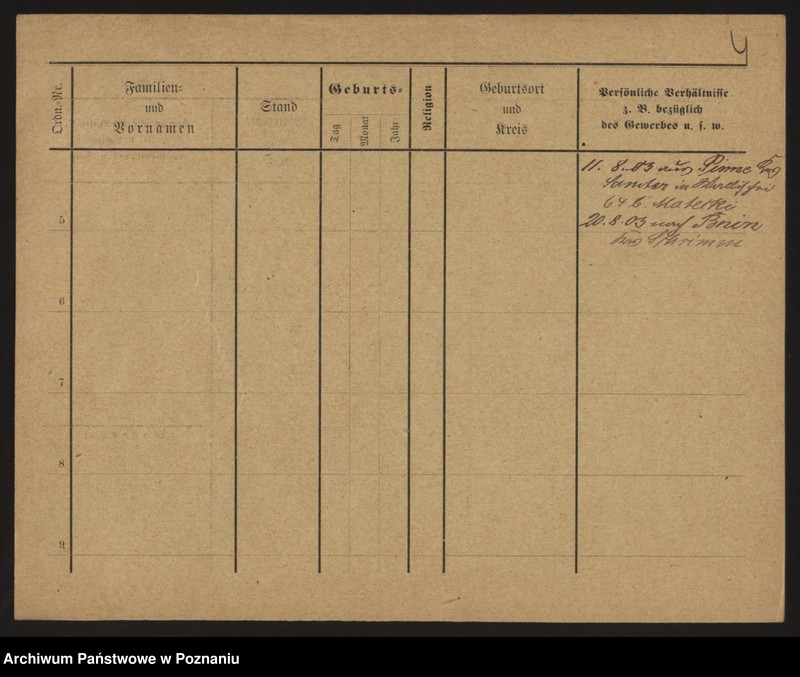 Y
Ordn.-Nr.
Familien-
und
Vornamen
Stand
Geburts-
Tag
Monat
Jahr
Religion
Geburtsort
und
Kreis
Persönliche Verhältnisse
z. B. bezüglich
des Gewerbes u. s. w.
11. 8.03 aus Pinne Krs
Samter in
64 b. Matecki
20.8.03 nach Bnin
Krs Schrimm
5
6
7
8
9
Archiwum Państwowe w Poznaniu